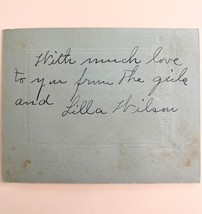 With much love
to you from The girls
and Lilla Wilson